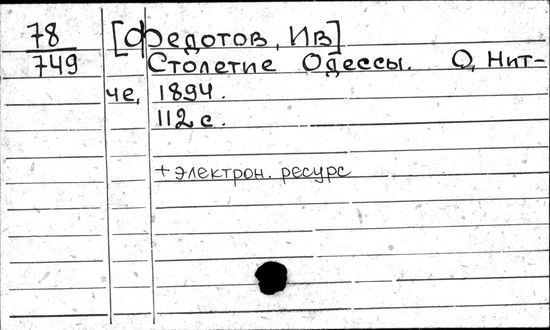 78 [Федотов, Ив]
749 Столетие Одессы. О, Нит-
че, 1894.
112 с.
+ электрон. ресурс